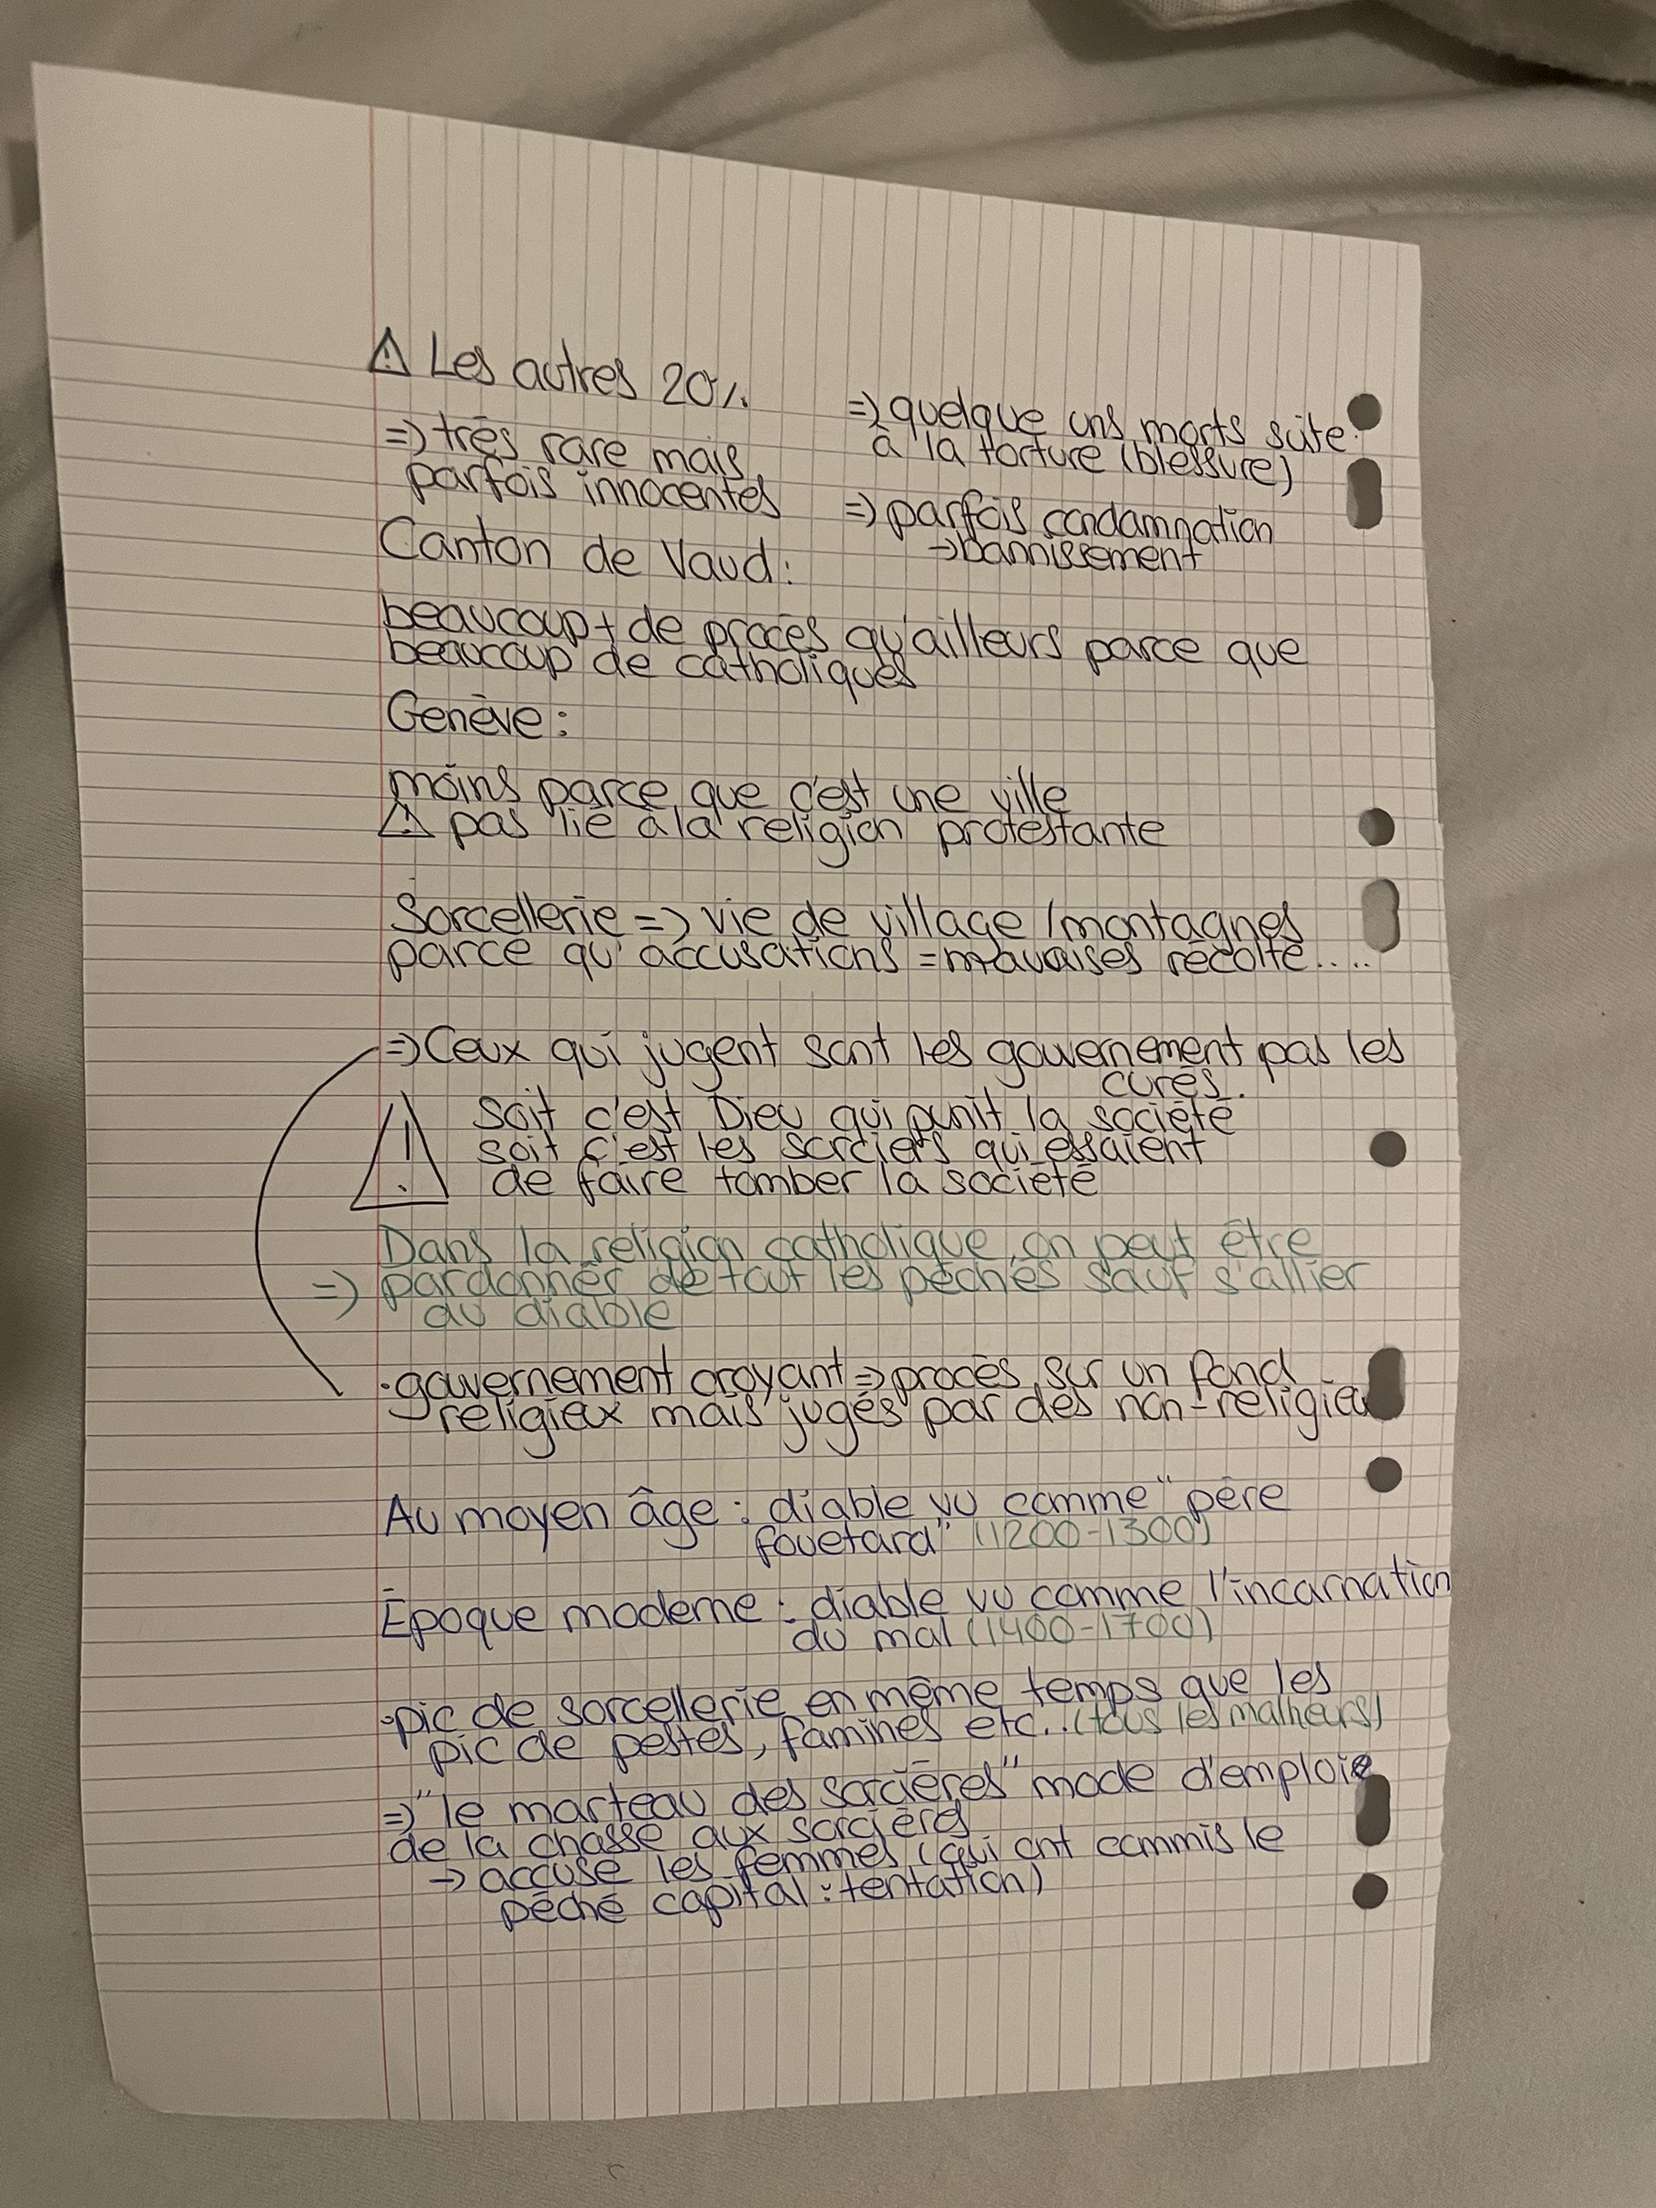 ⚠ Les autres 20%
=> très rare mais
parfois innocentes
=> quelque uns morts suite
à la torture (blessure)
=> parfois condamnation
→ bannissement
Canton de Vaud :
beaucoup + de procès qu'ailleurs parce que
beaucoup de catholiques
Genève :
moins parce que c'est une ville
⚠ pas lié à la religion protestante
Sorcellerie => vie de village / montagnes
parce qu'accusations = mauvaises récolte....
=> Ceux qui jugent sont les gouvernement pas les
curés.
⚠ soit c'est Dieu qui punit la société
soit c'est les sorciers qui essaient
de faire tomber la société
Dans la religion catholique, on peut être
=> pardonner de tout les péchés sauf s'allier
au diable
· gouvernement croyant => procès sur un fond
religieux mais jugés par des non-religieux
Au moyen âge : diable vu comme "père
fouetard" (1200-1300)
Époque moderne : diable vu comme l'incarnation
du mal (1400-1700)
· pic de sorcellerie en même temps que les
pic de pestes, famines etc... (tous les malheurs)
=> "le marteau des sorcières" mode d'emploie
de la chasse aux sorcièrs
→ accuse les femmes (qui ont commis le
péché capital : tentation)